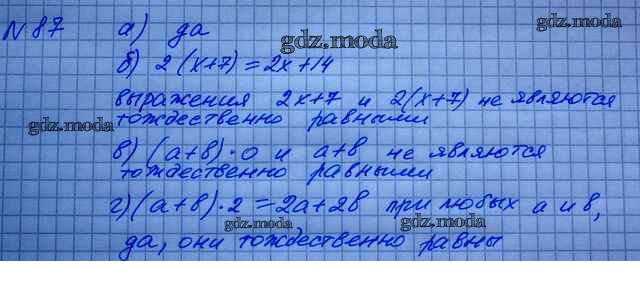 №87 а) да
б) 2(x+7)=2x+14
выражения 2x+7 и 2(x+7) не являются
тождественно равными
в) (а+в)·0 и а+в не являются
тождественно равными
г) (а+в)·2=2а+2в при любых а и в,
да, они тождественно равны
gdz.moda
gdz.moda
gdz.moda
gdz.moda
gdz.moda
gdz.moda